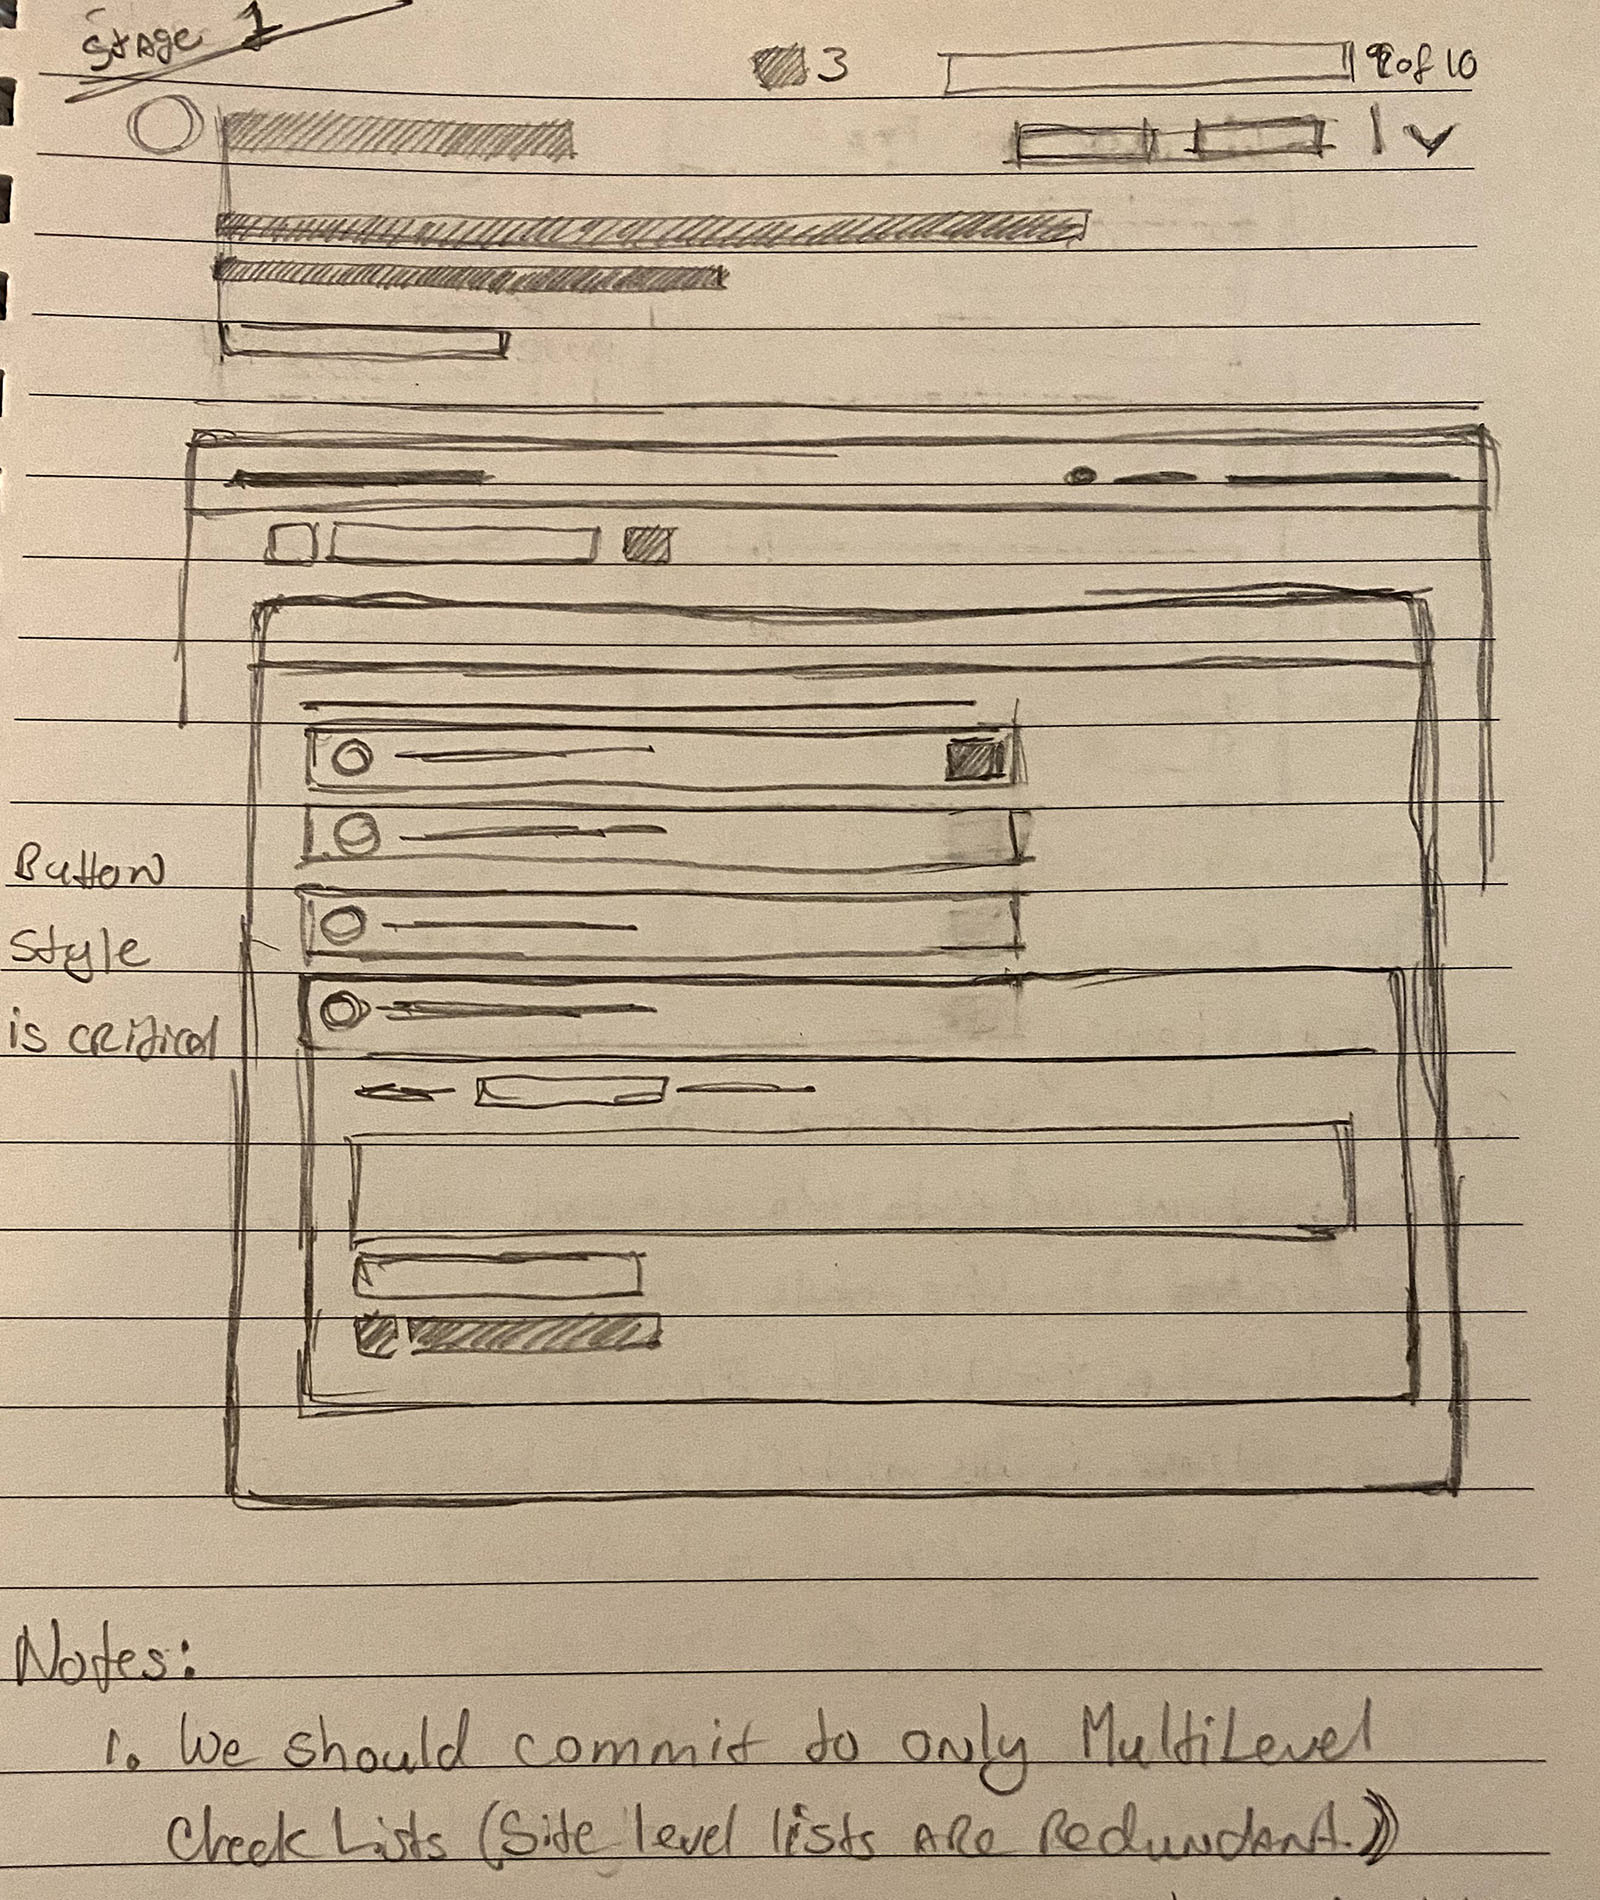 Stage 1
3
2 of 10
Button
Style
is critical
Notes:
1. We should commit to only MultiLevel
Check Lists (Site level lists ARE Redundant.))